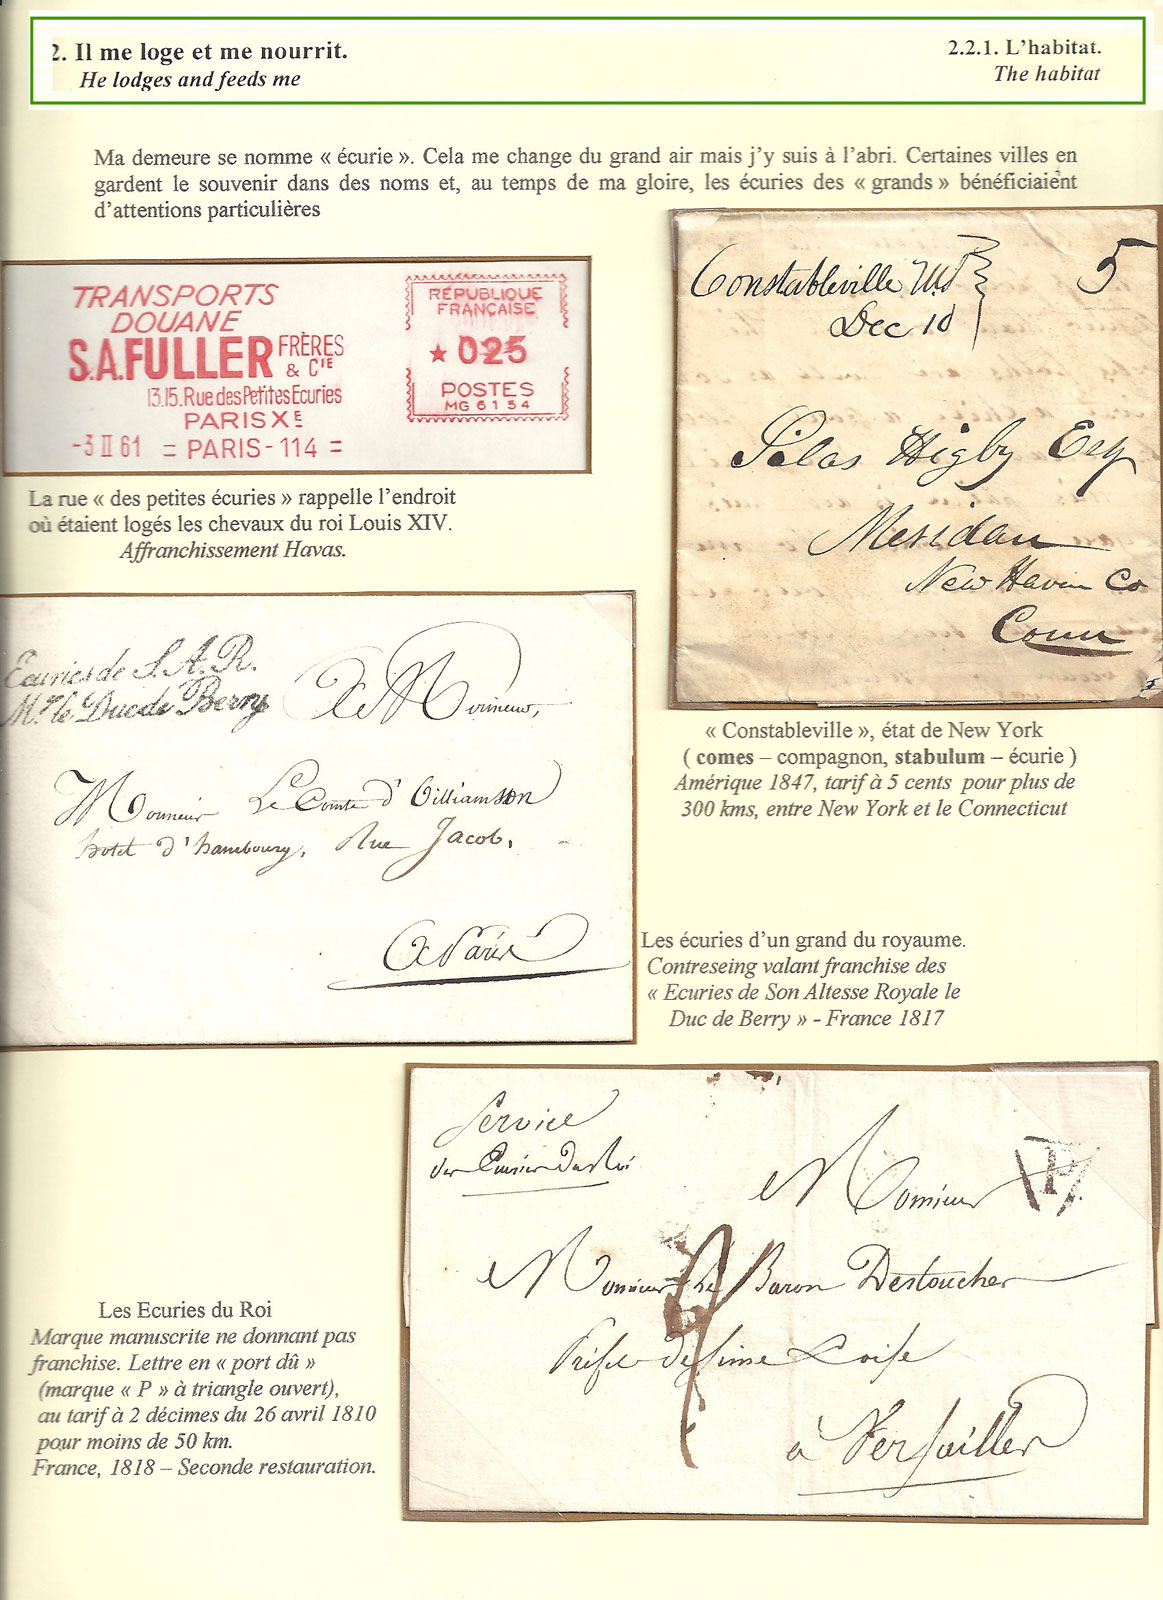 2. Il me loge et me nourrit.
He lodges and feeds me
2.2.1. L'habitat.
The habitat
Ma demeure se nomme « écurie ». Cela me change du grand air mais j'y suis à l'abri. Certaines villes en
gardent le souvenir dans des noms et, au temps de ma gloire, les écuries des « grands » bénéficiaient
d'attentions particulières
TRANSPORTS
DOUANE
S.A.FULLER FRÈRES
& CIE
13.15.Rue des Petites Ecuries
PARIS XE
-3 II 61 = PARIS-114 =
RÉPUBLIQUE
FRANÇAISE
★ 025
POSTES
MG 6154
La rue « des petites écuries » rappelle l'endroit
où étaient logés les chevaux du roi Louis XIV.
Affranchissement Havas.
Constableville
Dec 10
5
Silas Higby Esq
Meridan
New Haven Co
Conn
« Constableville », état de New York
( comes – compagnon, stabulum – écurie )
Amérique 1847, tarif à 5 cents pour plus de
300 kms, entre New York et le Connecticut
Ecuries de S.A.R.
Mgr le Duc de Berry
A Monsieur,
Monsieur Le Comte d'Williamson
hotel d'hambourg, Rue Jacob,
A Paris
Les écuries d'un grand du royaume.
Contreseing valant franchise des
« Ecuries de Son Altesse Royale le
Duc de Berry » - France 1817
Service
des Ecuries du Roi
P
A Monsieur
Monsieur Le Baron Destouches
à Versailles
Les Ecuries du Roi
Marque manuscrite ne donnant pas
franchise. Lettre en « port dû »
(marque « P » à triangle ouvert),
au tarif à 2 décimes du 26 avril 1810
pour moins de 50 km.
France, 1818 – Seconde restauration.